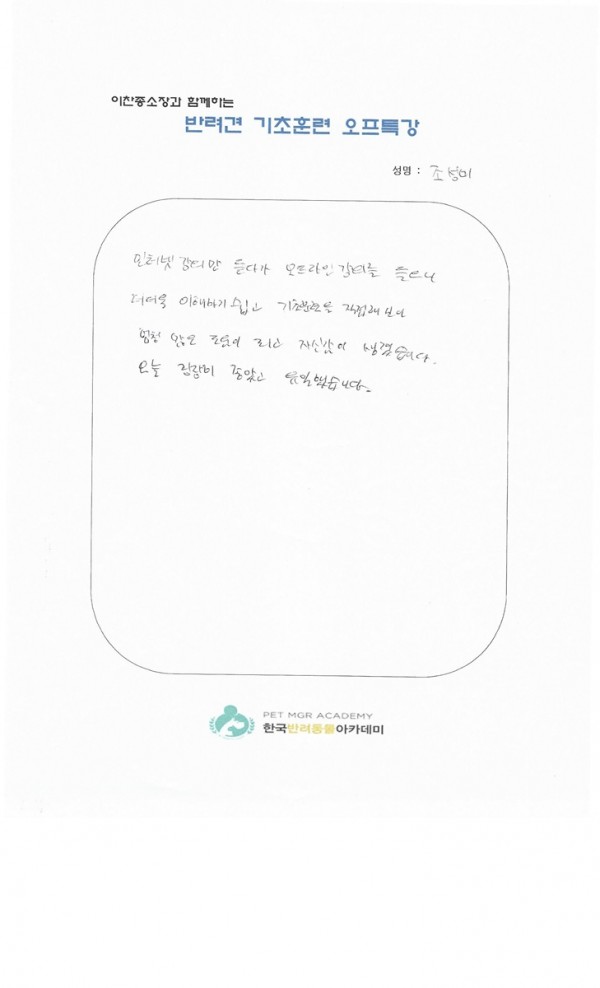 이찬종소장과 함께하는
반려견 기초훈련 오프특강
성명 : 조
인터넷 강의만 듣다가 오프라인 강의를 들으니
더더욱 이해하기 쉽고 기초훈련을 직접해 보니
엄청 많은 도움이 되고 자신감이 생겼습니다.
오늘 강의 좋았고 유익했습니다.
PET MGR ACADEMY
한국반려동물아카데미